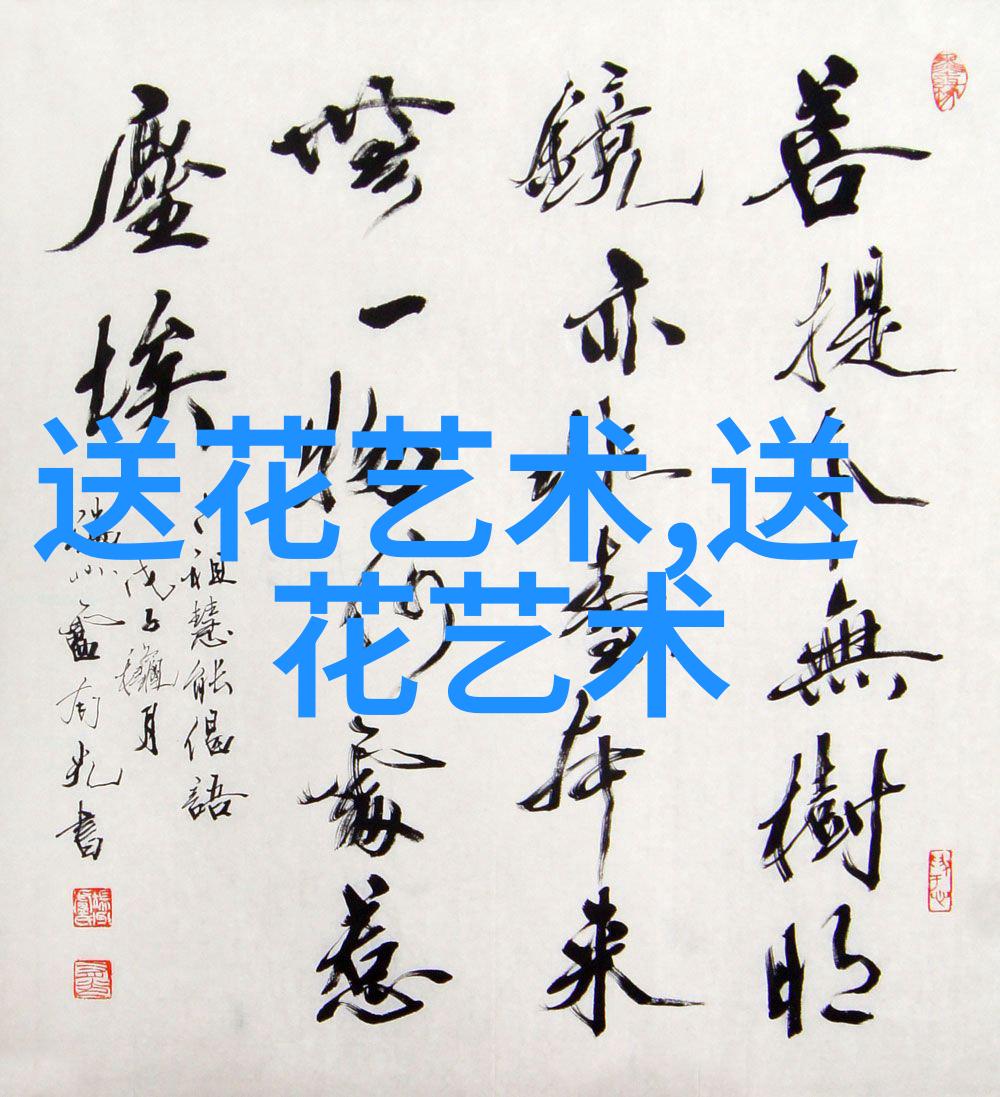 送花艺术,送
花艺术
菩提本無樹明
鏡亦非臺本来
無一物何處惹
塵埃
六祖慧能偈語
戊子穐月
書